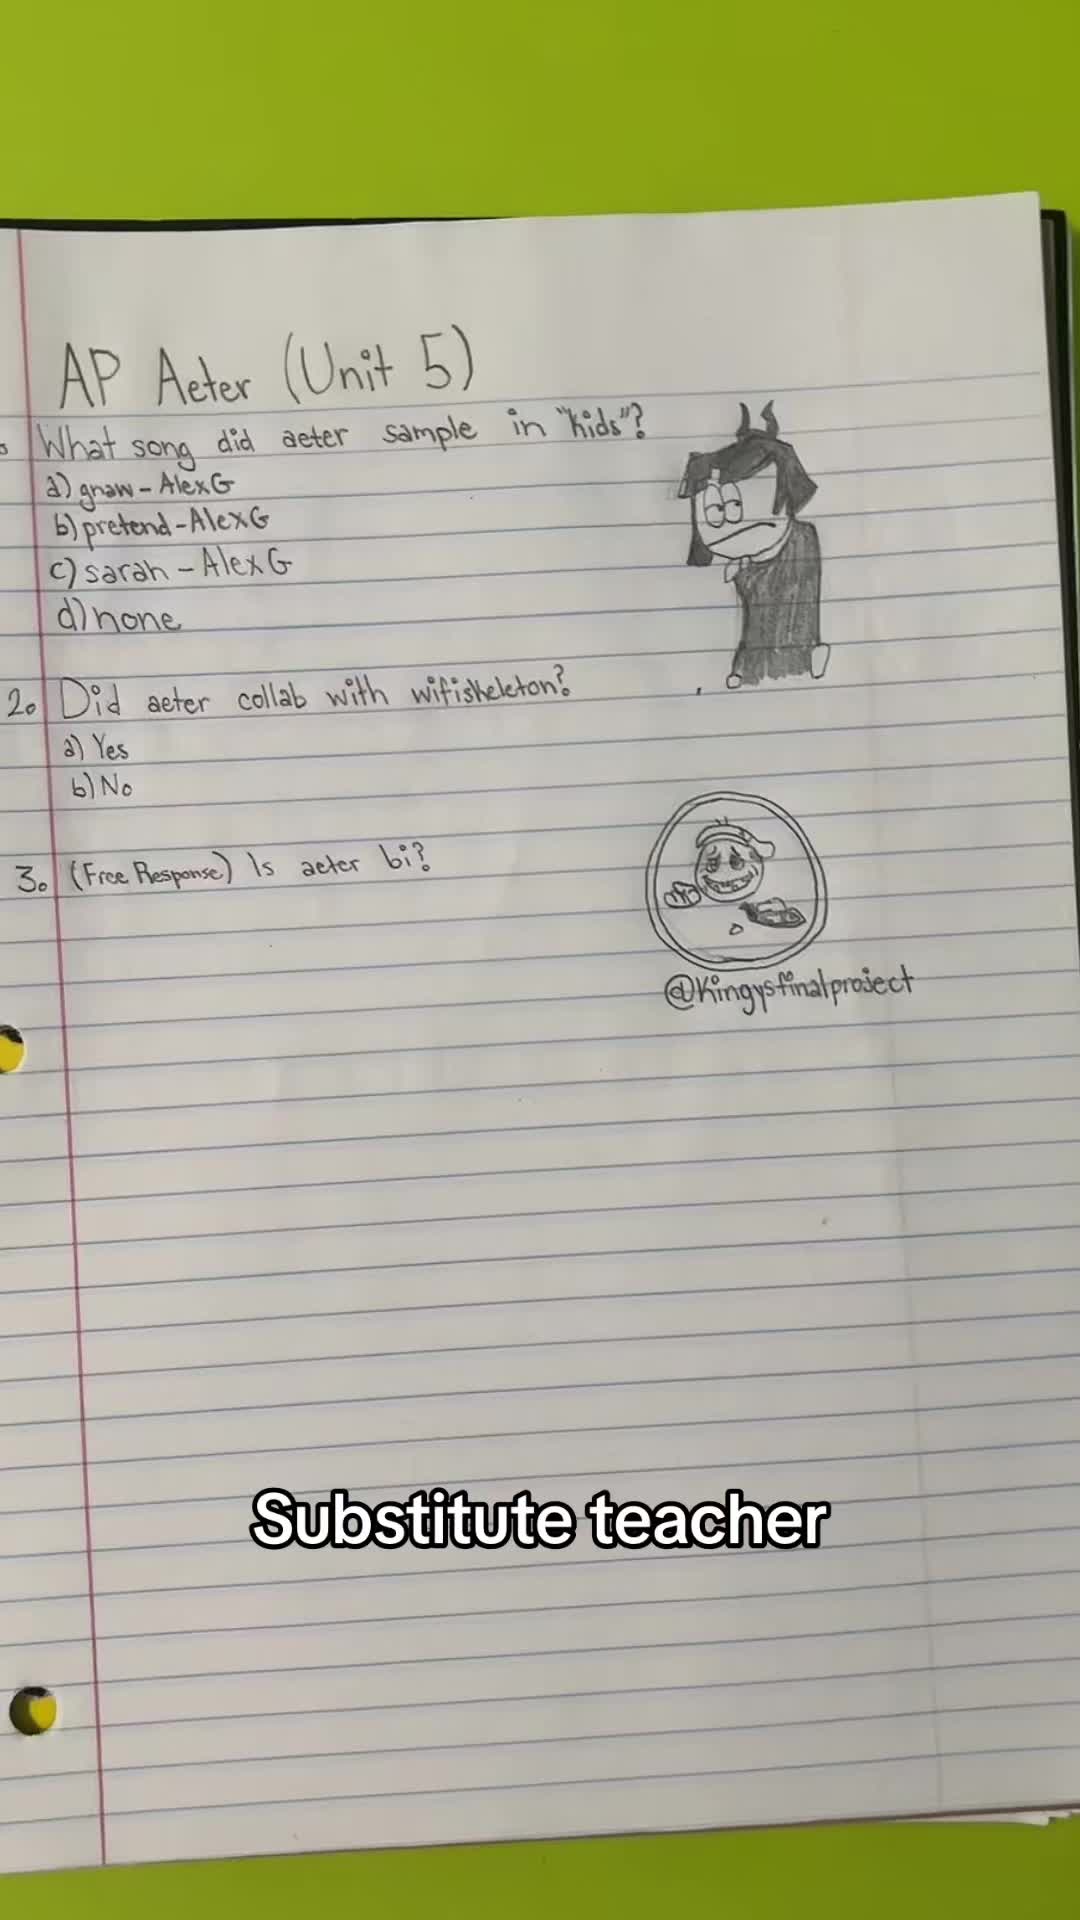 AP Aeter (Unit 5)
What song did aeter sample in "kids"?
a) gnaw - AlexG
b) pretend - AlexG
c) sarah - AlexG
d) none
2. Did aeter collab with wifiskeleton?
a) Yes
b) No
3. (Free Response) Is aeter bi?
@kingysfinalproject
Substitute teacher